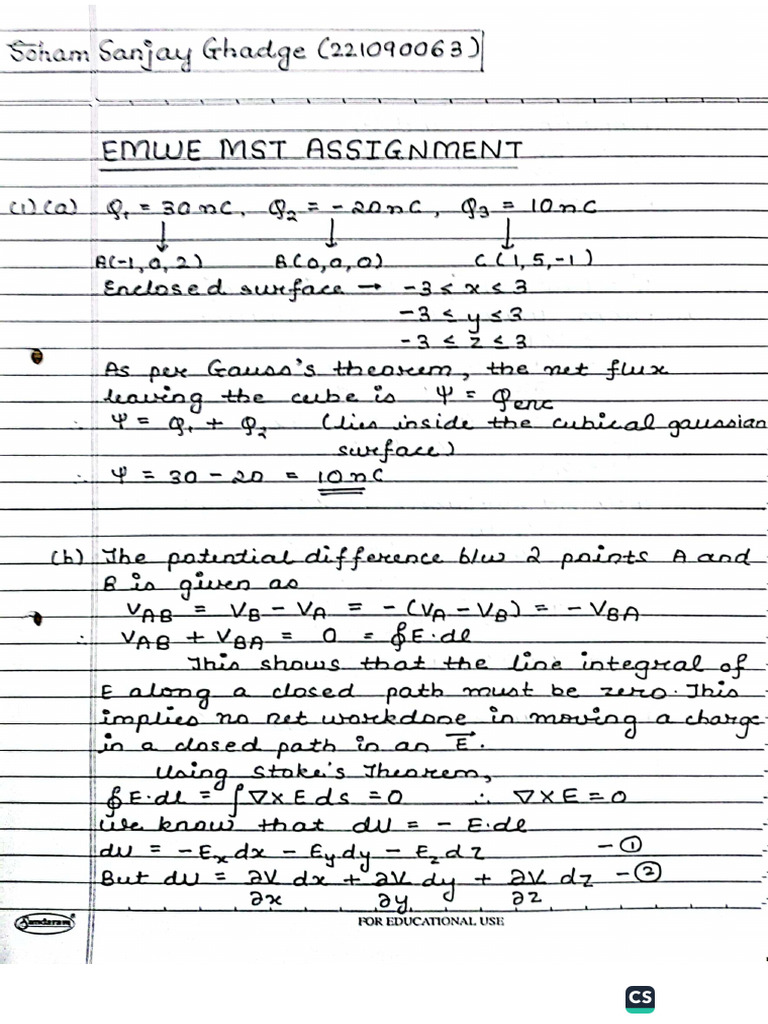 Soham Sanjay Ghadge (221090063)
EMWE MST ASSIGNMENT
(1) (a) Q₁ = 30nC, Q₂ = -20nC, Q₃ = 10nC
↓ ↓ ↓
A(-1,0,2) B(0,0,0) C(1,5,-1)
Enclosed surface → -3 ≤ x ≤ 3
-3 ≤ y ≤ 3
-3 ≤ z ≤ 3
As per Gauss's theorem, the net flux
leaving the cube is Ψ = Qenc
∴ Ψ = Q₁ + Q₂ (lies inside the cubical gaussian
surface)
∴ Ψ = 30 - 20 = 10nC
(b) The potential difference b/w 2 points A and
B is given as
VAB = VB - VA = -(VA - VB) = - VBA
∴ VAB + VBA = 0 = ∮E·dl
This shows that the line integral of
E along a closed path must be zero. This
implies no net workdone in moving a charge
in a closed path in an E⃗.
Using Stoke's Theorem,
∮E·dl = ∫∇×E ds = 0 ∴ ∇×E = 0
We know that dV = - E·dl
dV = -Ex dx - Ey dy - Ez dz - ①
But dV = ∂V/∂x dx + ∂V/∂y dy + ∂V/∂z dz - ②
Sundaram FOR EDUCATIONAL USE
CS